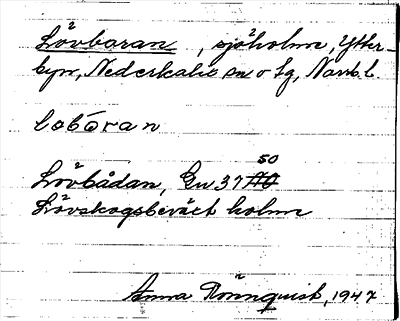 Lövbåran, sjöholm, Ytter-
byn, Nederkalix sn o tg, Norrb.l.
lobóran
50
Lövbådan, Gn 37
Lövskogsbeväxt holm
Anna Rönnquist, 1947